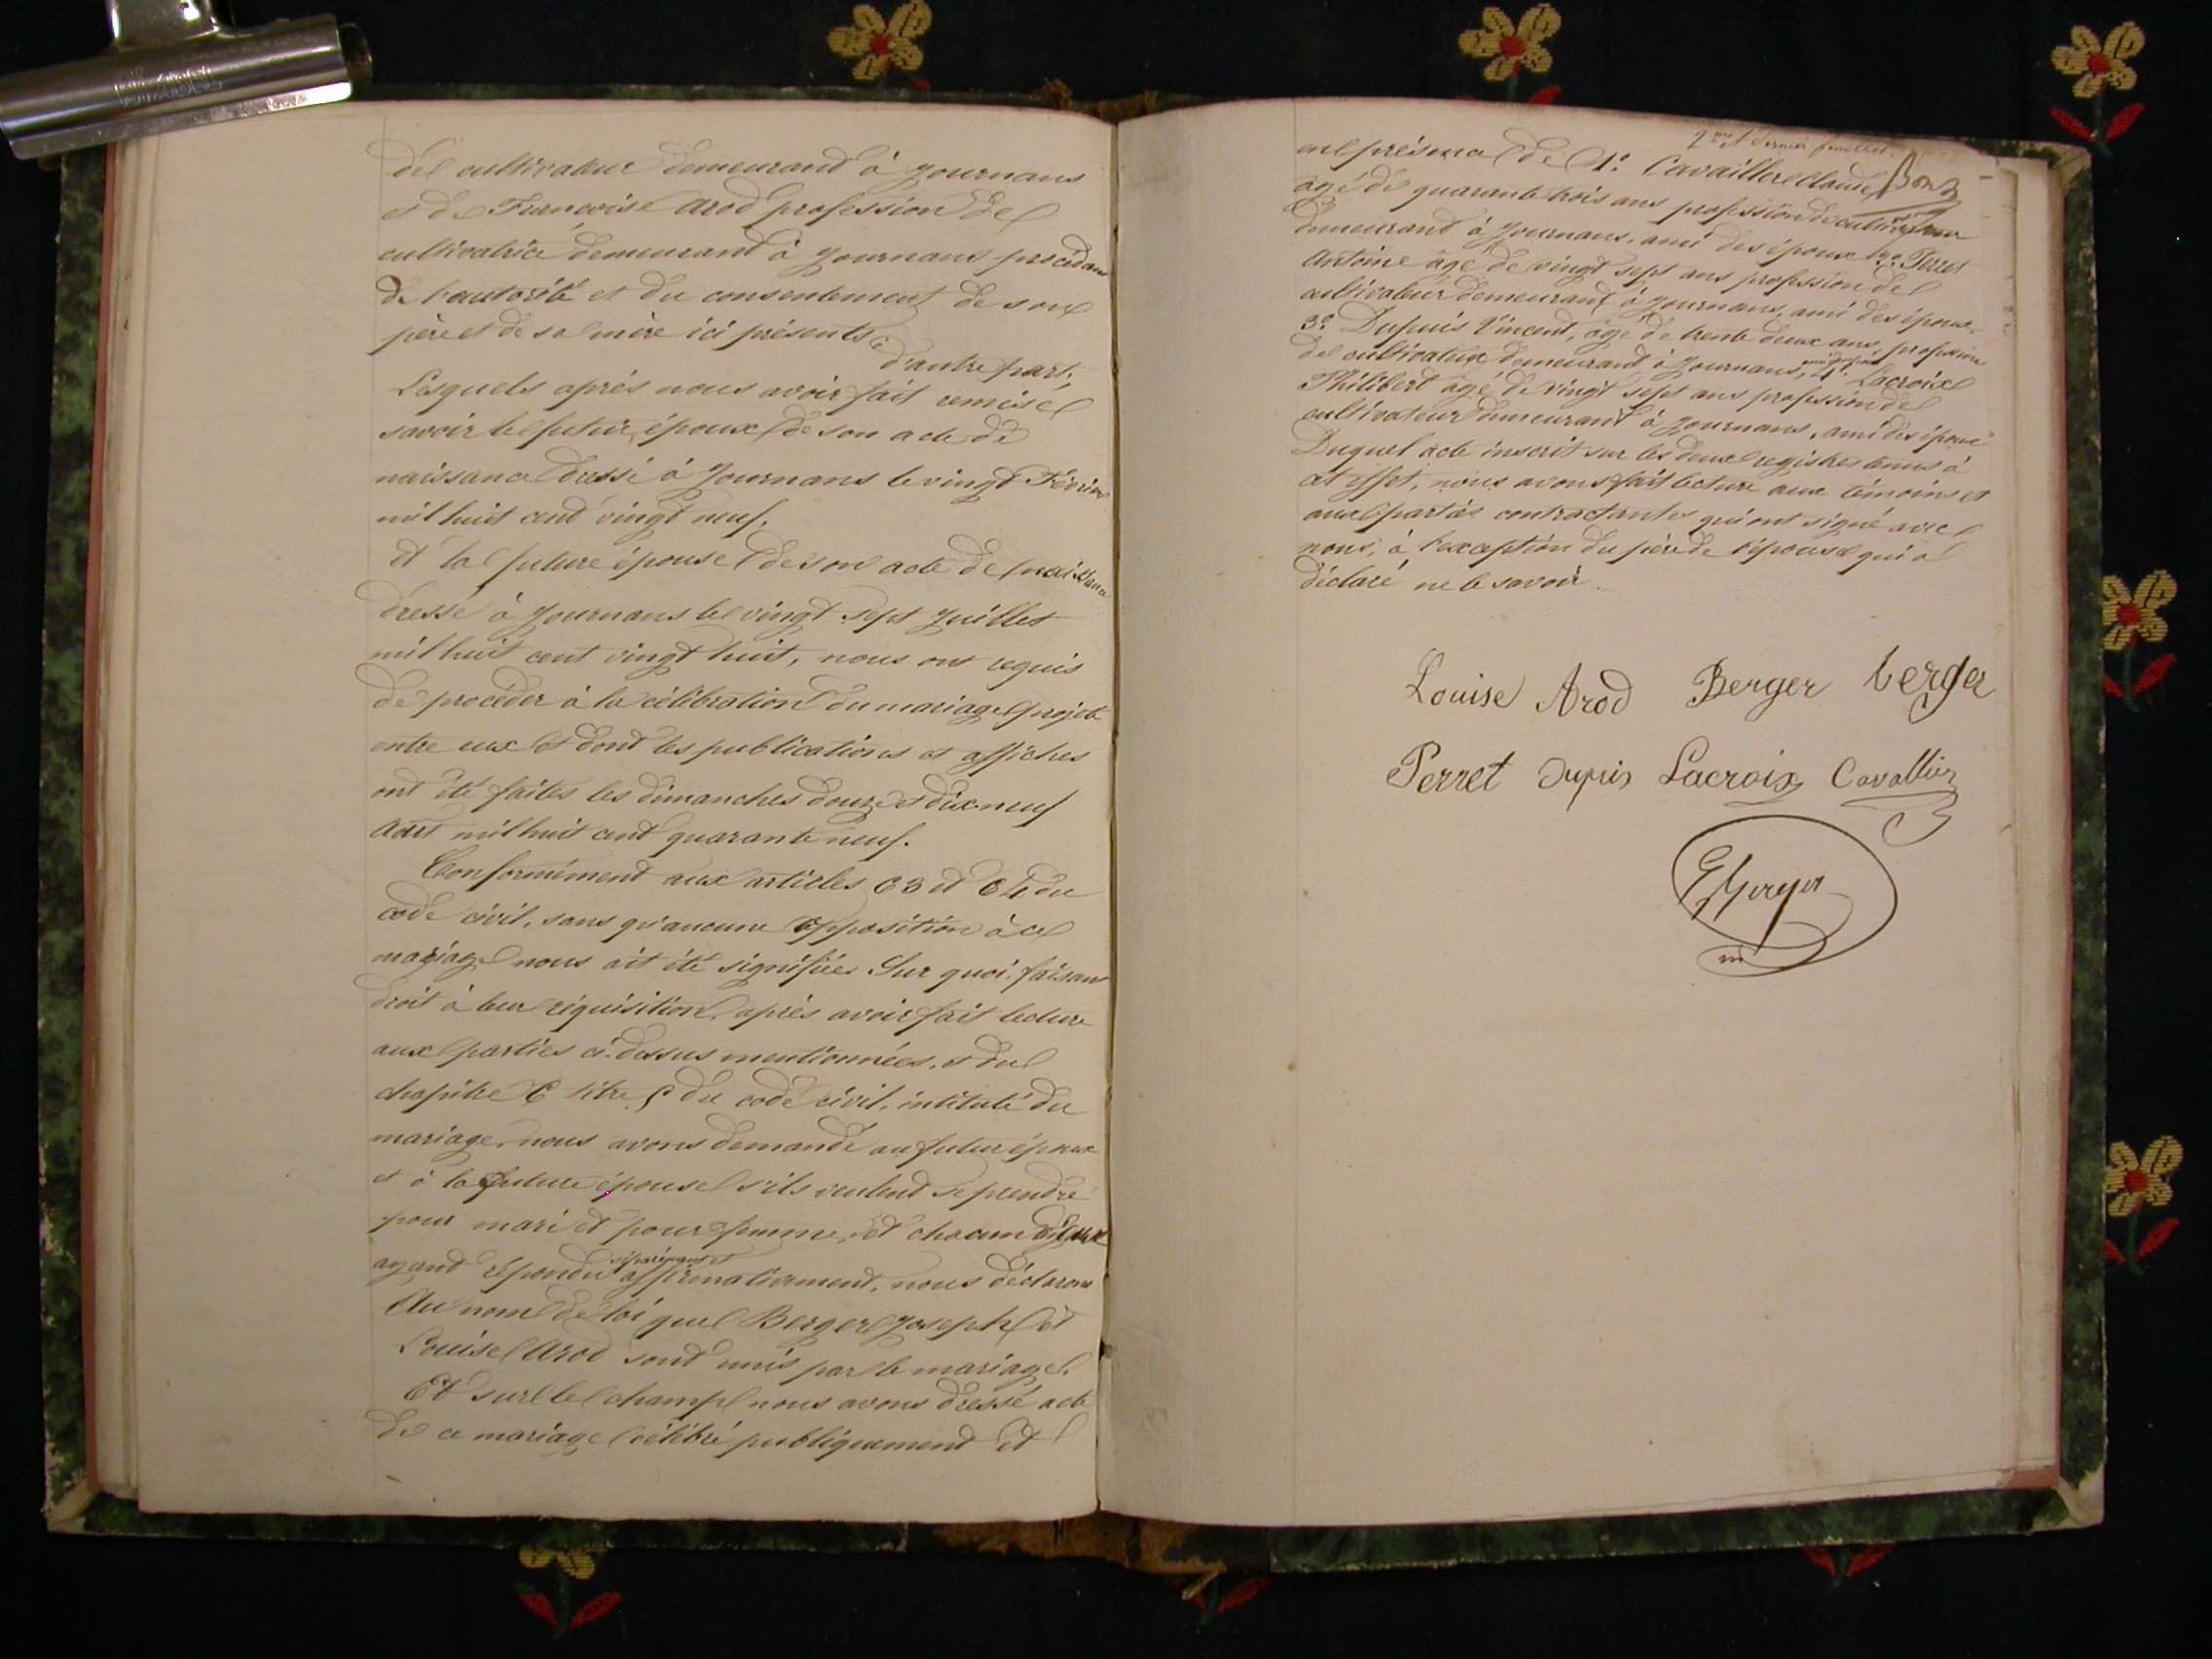 de cultivateur demeurant à Journans
et de Francoise Arod profession de
cultivatrice demeurant à Journans procédant
de l'autorité et du consentement de son
père et de sa mère ici présents
d'autre part.
Lesquels après nous avoir fait remise
savoir le futur époux de son acte de
naissance dressé à Journans le vingt Février
mil huit cent vingt neuf.
et la future épouse de son acte de naissance
dressé à Journans le vingt sept Juillet
mil huit cent vingt huit, nous ont requis
de procéder à la célébration du mariage projeté
entre eux et dont les publications et affiches
ont été faites les dimanches douze et dix neuf
Aout mil huit cent quarante neuf.
Conformément aux articles 63 et 64 du
code civil, sans qu'aucune opposition à ce
mariage nous ait été signifiée Sur quoi, faisant
droit à leur réquisition, après avoir fait lecture
aux parties ci-dessus mentionnées, et du
chapitre 6 titre 5 du code civil, intitulé du
mariage, nous avons demandé au futur époux
et à la future épouse s'ils veulent se prendre
pour mari et pour femme, et chacun d'eux
ayant répondu séparément et affirmativement, nous déclarons
Au nom de loi que Berger Joseph et
Louise Arod sont unis par le mariage.
Et sur le champ nous avons dressé acte
de ce mariage célébré publiquement et
2me et dernier feuillet.
en présence de 1° Cavaillere Claude
agé de quarante trois ans profession de cultivateur
demeurant à Journans, ami des époux 2° Perret
Antoine agé de vingt sept ans profession de
cultivateur demeurant à Journans, ami des époux.
3° Dupuis Vincent, agé de trente deux ans, profession
de cultivateur demeurant à Journans, 4° Lacroix
Philibert agé de vingt sept ans profession de
cultivateur demeurant à Journans, ami des époux
Duquel acte inscrit sur les deux registres tenus à
cet effet, nous avons fait lecture aux témoins et
aux parties contractantes qui ont signé avec
nous, à l'exception du père de l'épouse qui a
déclaré ne le savoir
Louise Arod Berger berger
Perret Dupuis Lacroix Cavallier